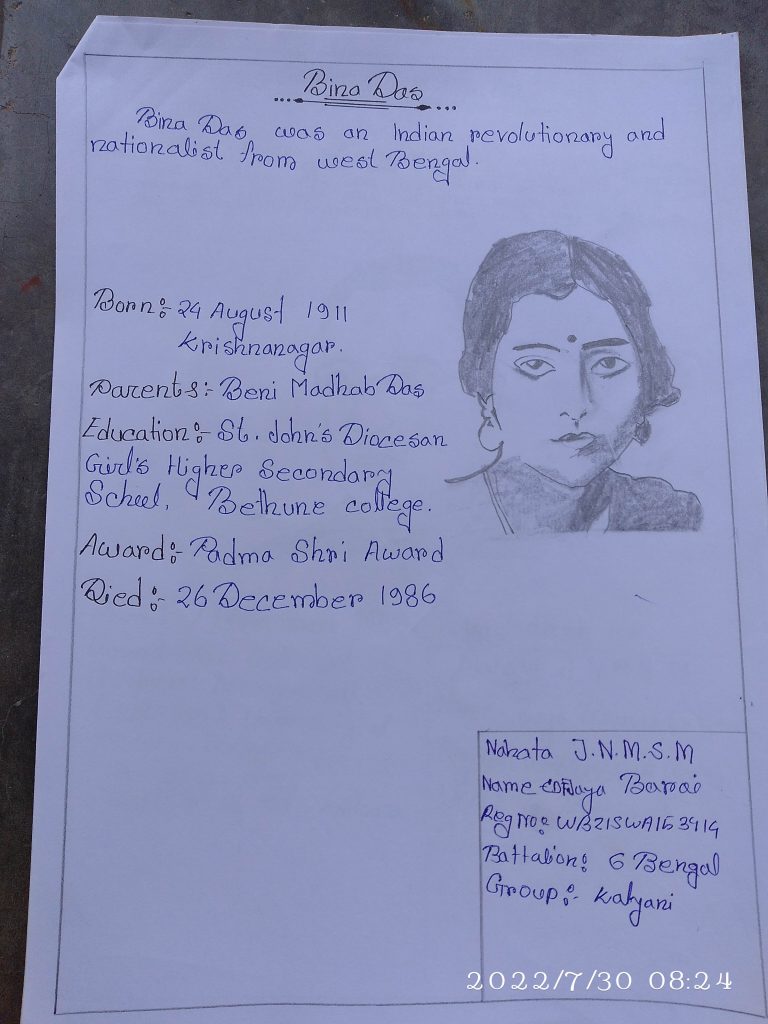 Bina Das
Bina Das was an Indian revolutionary and
nationalist from west Bengal.
Born:- 24 August 1911
Krishnanagar.
Parents:- Beni Madhab Das
Education:- St. John's Diocesan
Girl's Higher Secondary
School, Bethune college.
Award:- Padma Shri Award
Died:- 26 December 1986
Nahata J.N.M.S.M
Name Barai
Reg no: WB21SWA153914
Battalion: 6 Bengal
Group:- Kalyani
2022/7/30 08:24